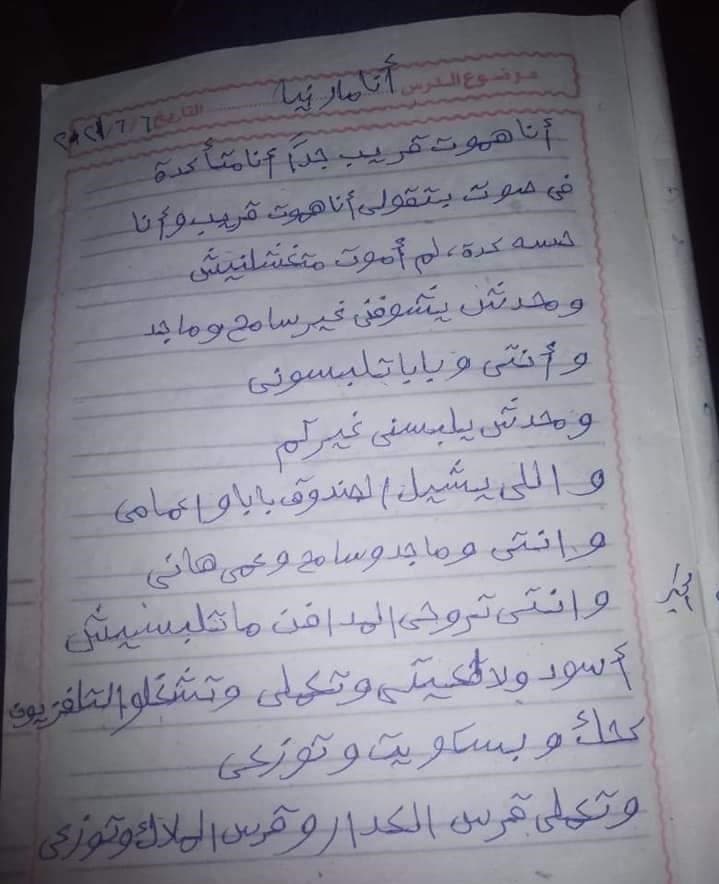 موضوع الدرس أنا مارينا التاريخ ٦/٦/٢٠٢١
أنا هموت قريب جداً أنا متأكدة
فى صوت بتقولى أنا هموت قريب وأنا
حسه كدة، لم أموت متغسلنيش
ومحدش يشوفنى غير سامح وماجد
وأنتى وبابا تلبسونى
ومحدش يلبسنى غيركم
واللى يشيل الصندوق بابا واعمامى
وانتى وماجد وسامح وعمى هانى
وانتى تروحى المدافن ماتلبسيش
أسود ولا تعيتى وتعملى وتشغلو التلفزيون
كحك وبسكويت وتوزعى
وتعملى قرس الكدار وقرس الملاك وتوزعى